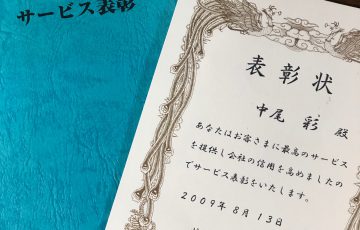 サービス表彰
表彰状
中尾 彩 殿
あなたはお客さまに最高のサービス
を提供し会社の信用を高めましたの
でサービス表彰をいたします。
2009年8月13日